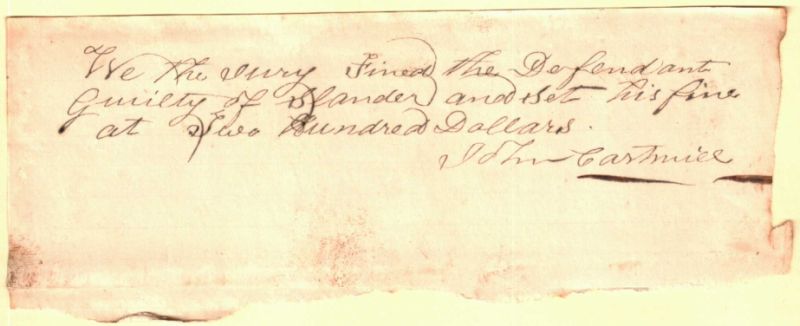 We the Jury Fined the Defendant
Guilty of Slander and Set his fine
at Two Hundred Dollars.
John Cartmill